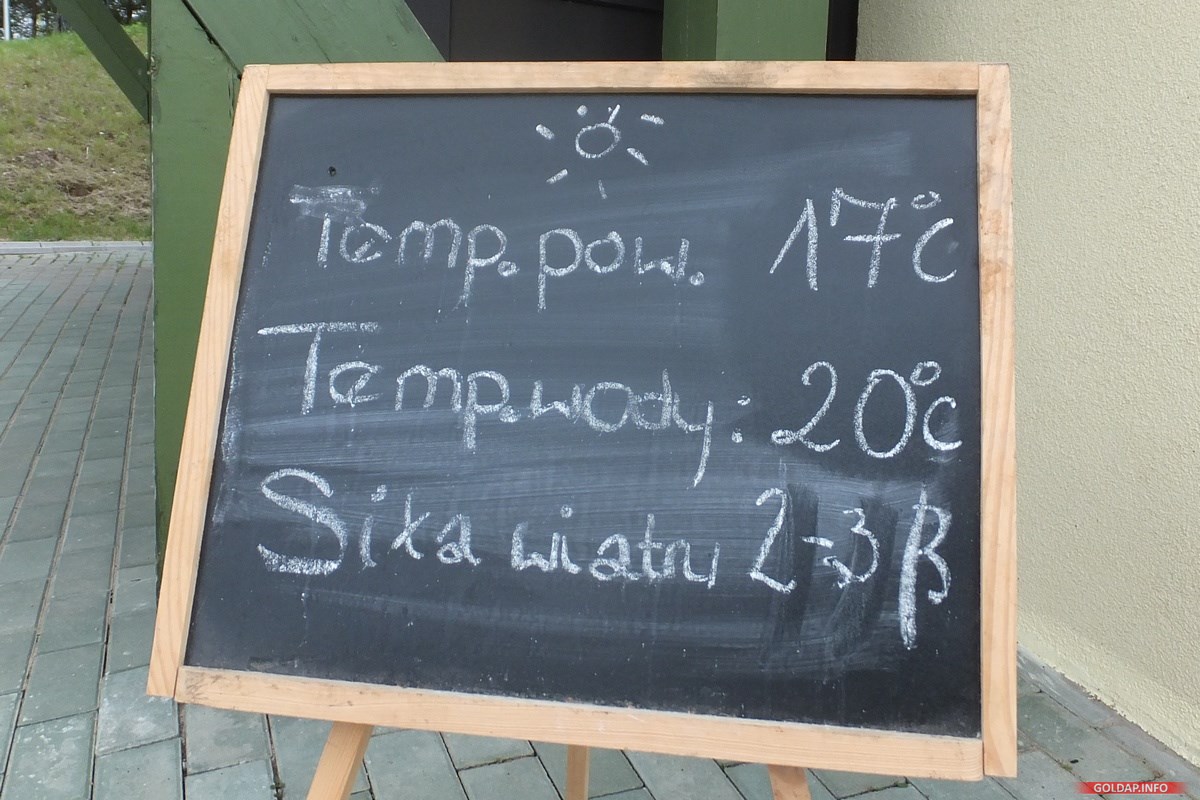 Temp. pow. 17°C
Temp. wody: 20°C
Siła wiatru 2-3 B
GOLDAP.INFO